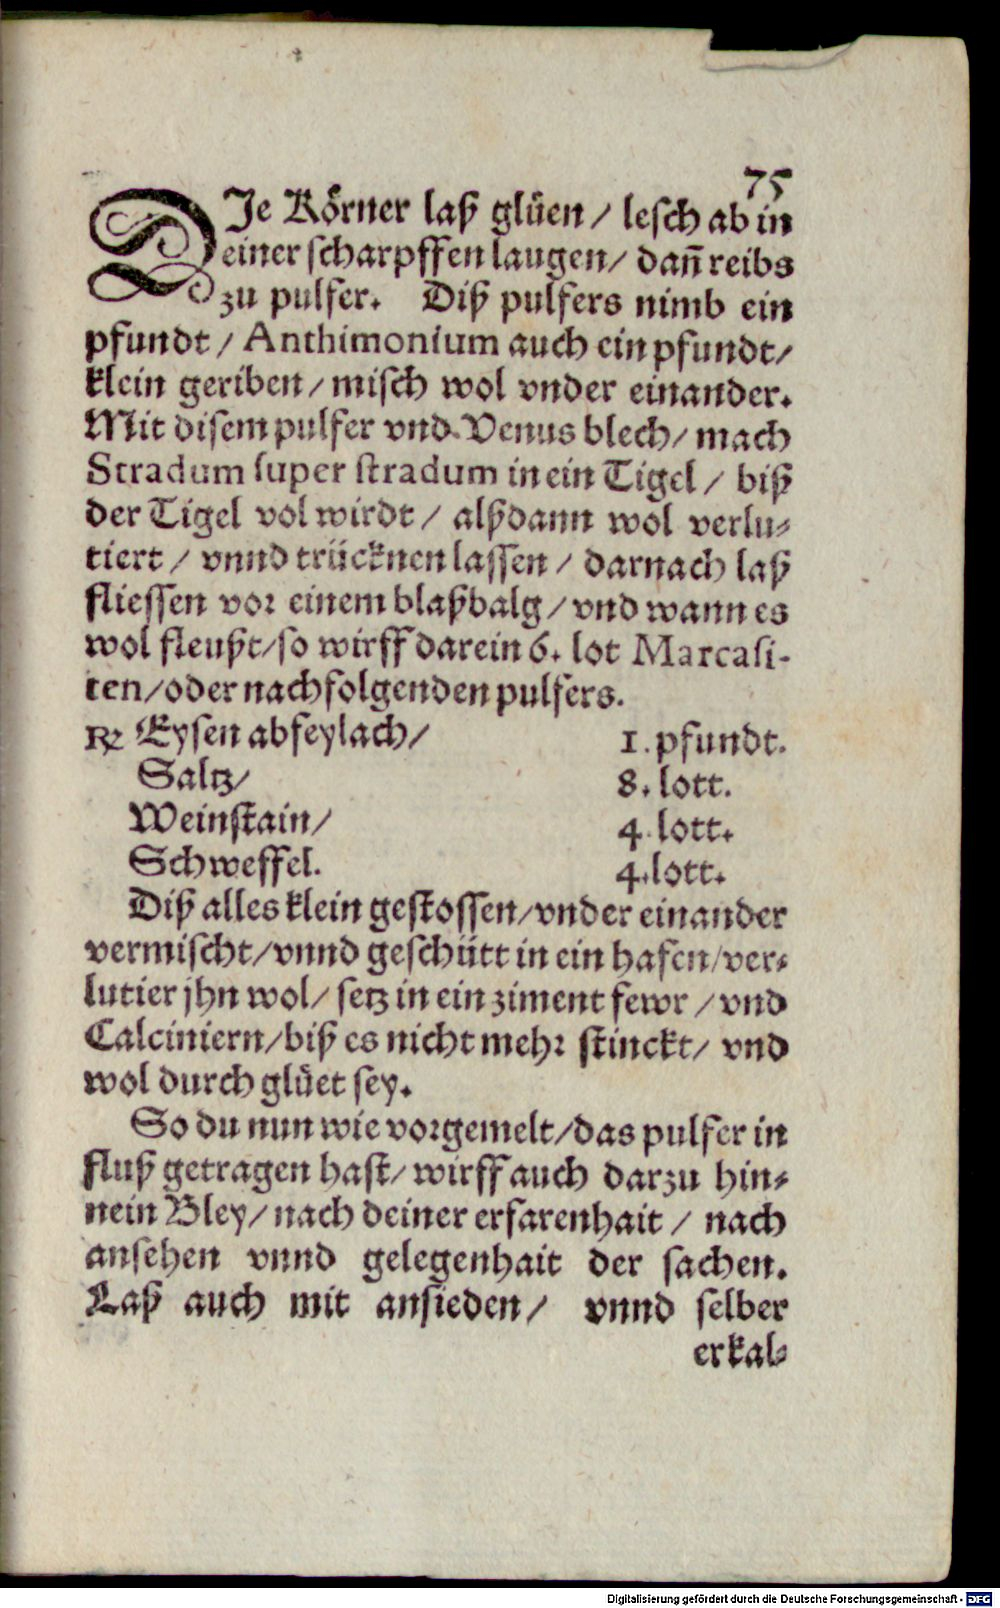 75
DIe Körner laß glüen / lesch ab in
einer scharpffen laugen / dañ reibs
zu pulfer. Diß pulfers nimb ein
pfundt / Anthimonium auch ein pfundt /
klein geriben / misch wol vnder einander.
Mit disem pulfer vnd Venus blech / mach
Stradum super stradum in ein Tigel / biß
der Tigel vol wirdt / alßdann wol verlu-
tiert / vnnd trücknen lassen / darnach laß
fliessen vor einem blaßbalg / vnd wann es
wol fleußt / so wirff darein 6. lot Marcasi-
ten / oder nachfolgenden pulfers.
℞ Eysen abfeylach / 1. pfundt.
Saltz / 8. lott.
Weinstain / 4. lott.
Schweffel. 4. lott.
Diß alles klein gestossen / vnder einander
vermischt / vnnd geschütt in ein hafen / ver-
lutier jhn wol / setz in ein ziment fewr / vnd
Calciniern / biß es nicht mehr stinckt / vnd
wol durch glüet sey.
So du nun wie vorgemelt / das pulfer in
fluß getragen hast / wirff auch darzu hin-
nein Bley / nach deiner erfarenhait / nach
ansehen vnnd gelegenhait der sachen.
Laß auch mit ansieden / vnnd selber
erkal-
Digitalisierung gefördert durch die Deutsche Forschungsgemeinschaft - DFG